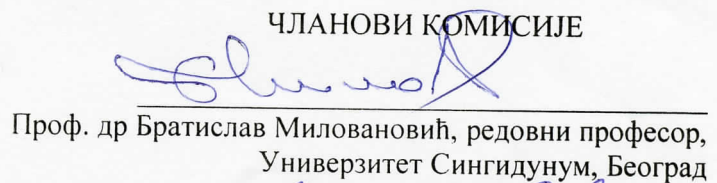 ЧЛАНОВИ КОМИСИЈЕ
Проф. др Братислав Миловановић, редовни професор,
Универзитет Сингидунум, Београд